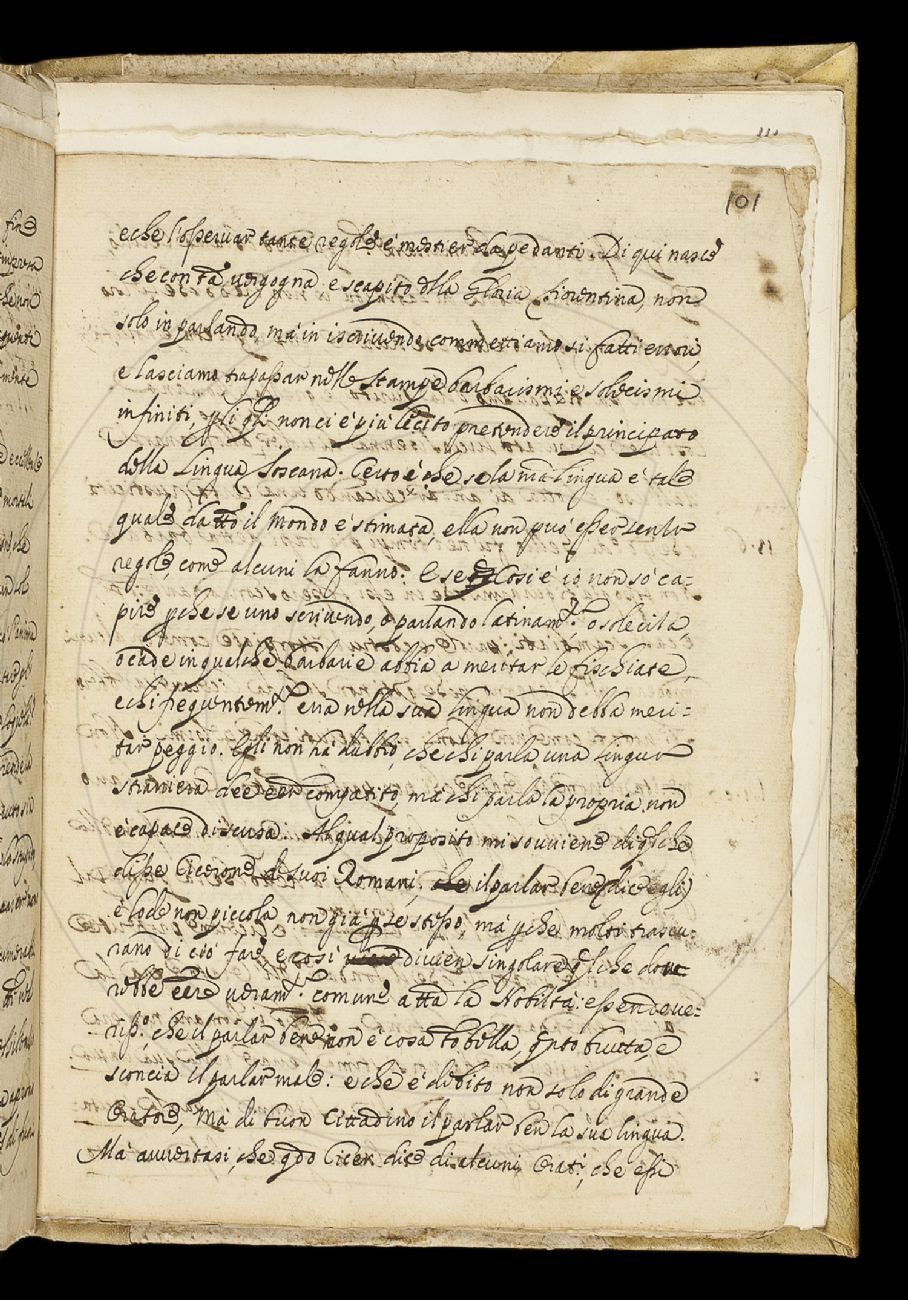 101
e che l'osseruar tante regole è mestier da pedanti. Di qui nasce
che con tta uergogna e scapito della Gloria fiorentina, non
solo in parlando, mà in iscriuendo commettiamo si fatti errori,
e lasciamo trapassar nelle stampe barbarismi e solecismi
infiniti, p li qli non ci è più lecito pretendere il principato
della Lingua Toscana. Certo è che se la nra Lingua è tale
quale da tto il Mondo è stimata, ella non può esser senza
regole, come alcuni la fanno. E se Cosi è io non sò ca-
pire pche se uno scriuendo, o parlando latinamte. o solecita,
o cade in qualche barbarie abbia a meritar le fischiate,
e chi frequentemte. erra nella sua Lingua non debba meri-
tar peggio. Egli non há dubbio, che chi parla una Lingua
straniera dee eer compatito, mà chi parla la propria non
è capace di scusa. Al qual proposito mi souuiene di ql che
disse Cicerone de suoi Romani, che il parlar bene (dice egli)
è lode non piccola non già p se stesso, mà pche molti trascu-
rano di ciò fare e cosi diuien singolare ql che dou-
rebbe eere ueramte. comune a tta la Nobiltà: essendo ue-
rissº. che il parlar bene non è cosa tto bella, qnto brutta, e
sconcia il parlar male: e che è debito non solo di grande
Oratore, Mà di buon Cittadino il parlar ben la sua lingua.
Mà auuertasi, che qdo Cicer. dice di alcuni Orati, che essi